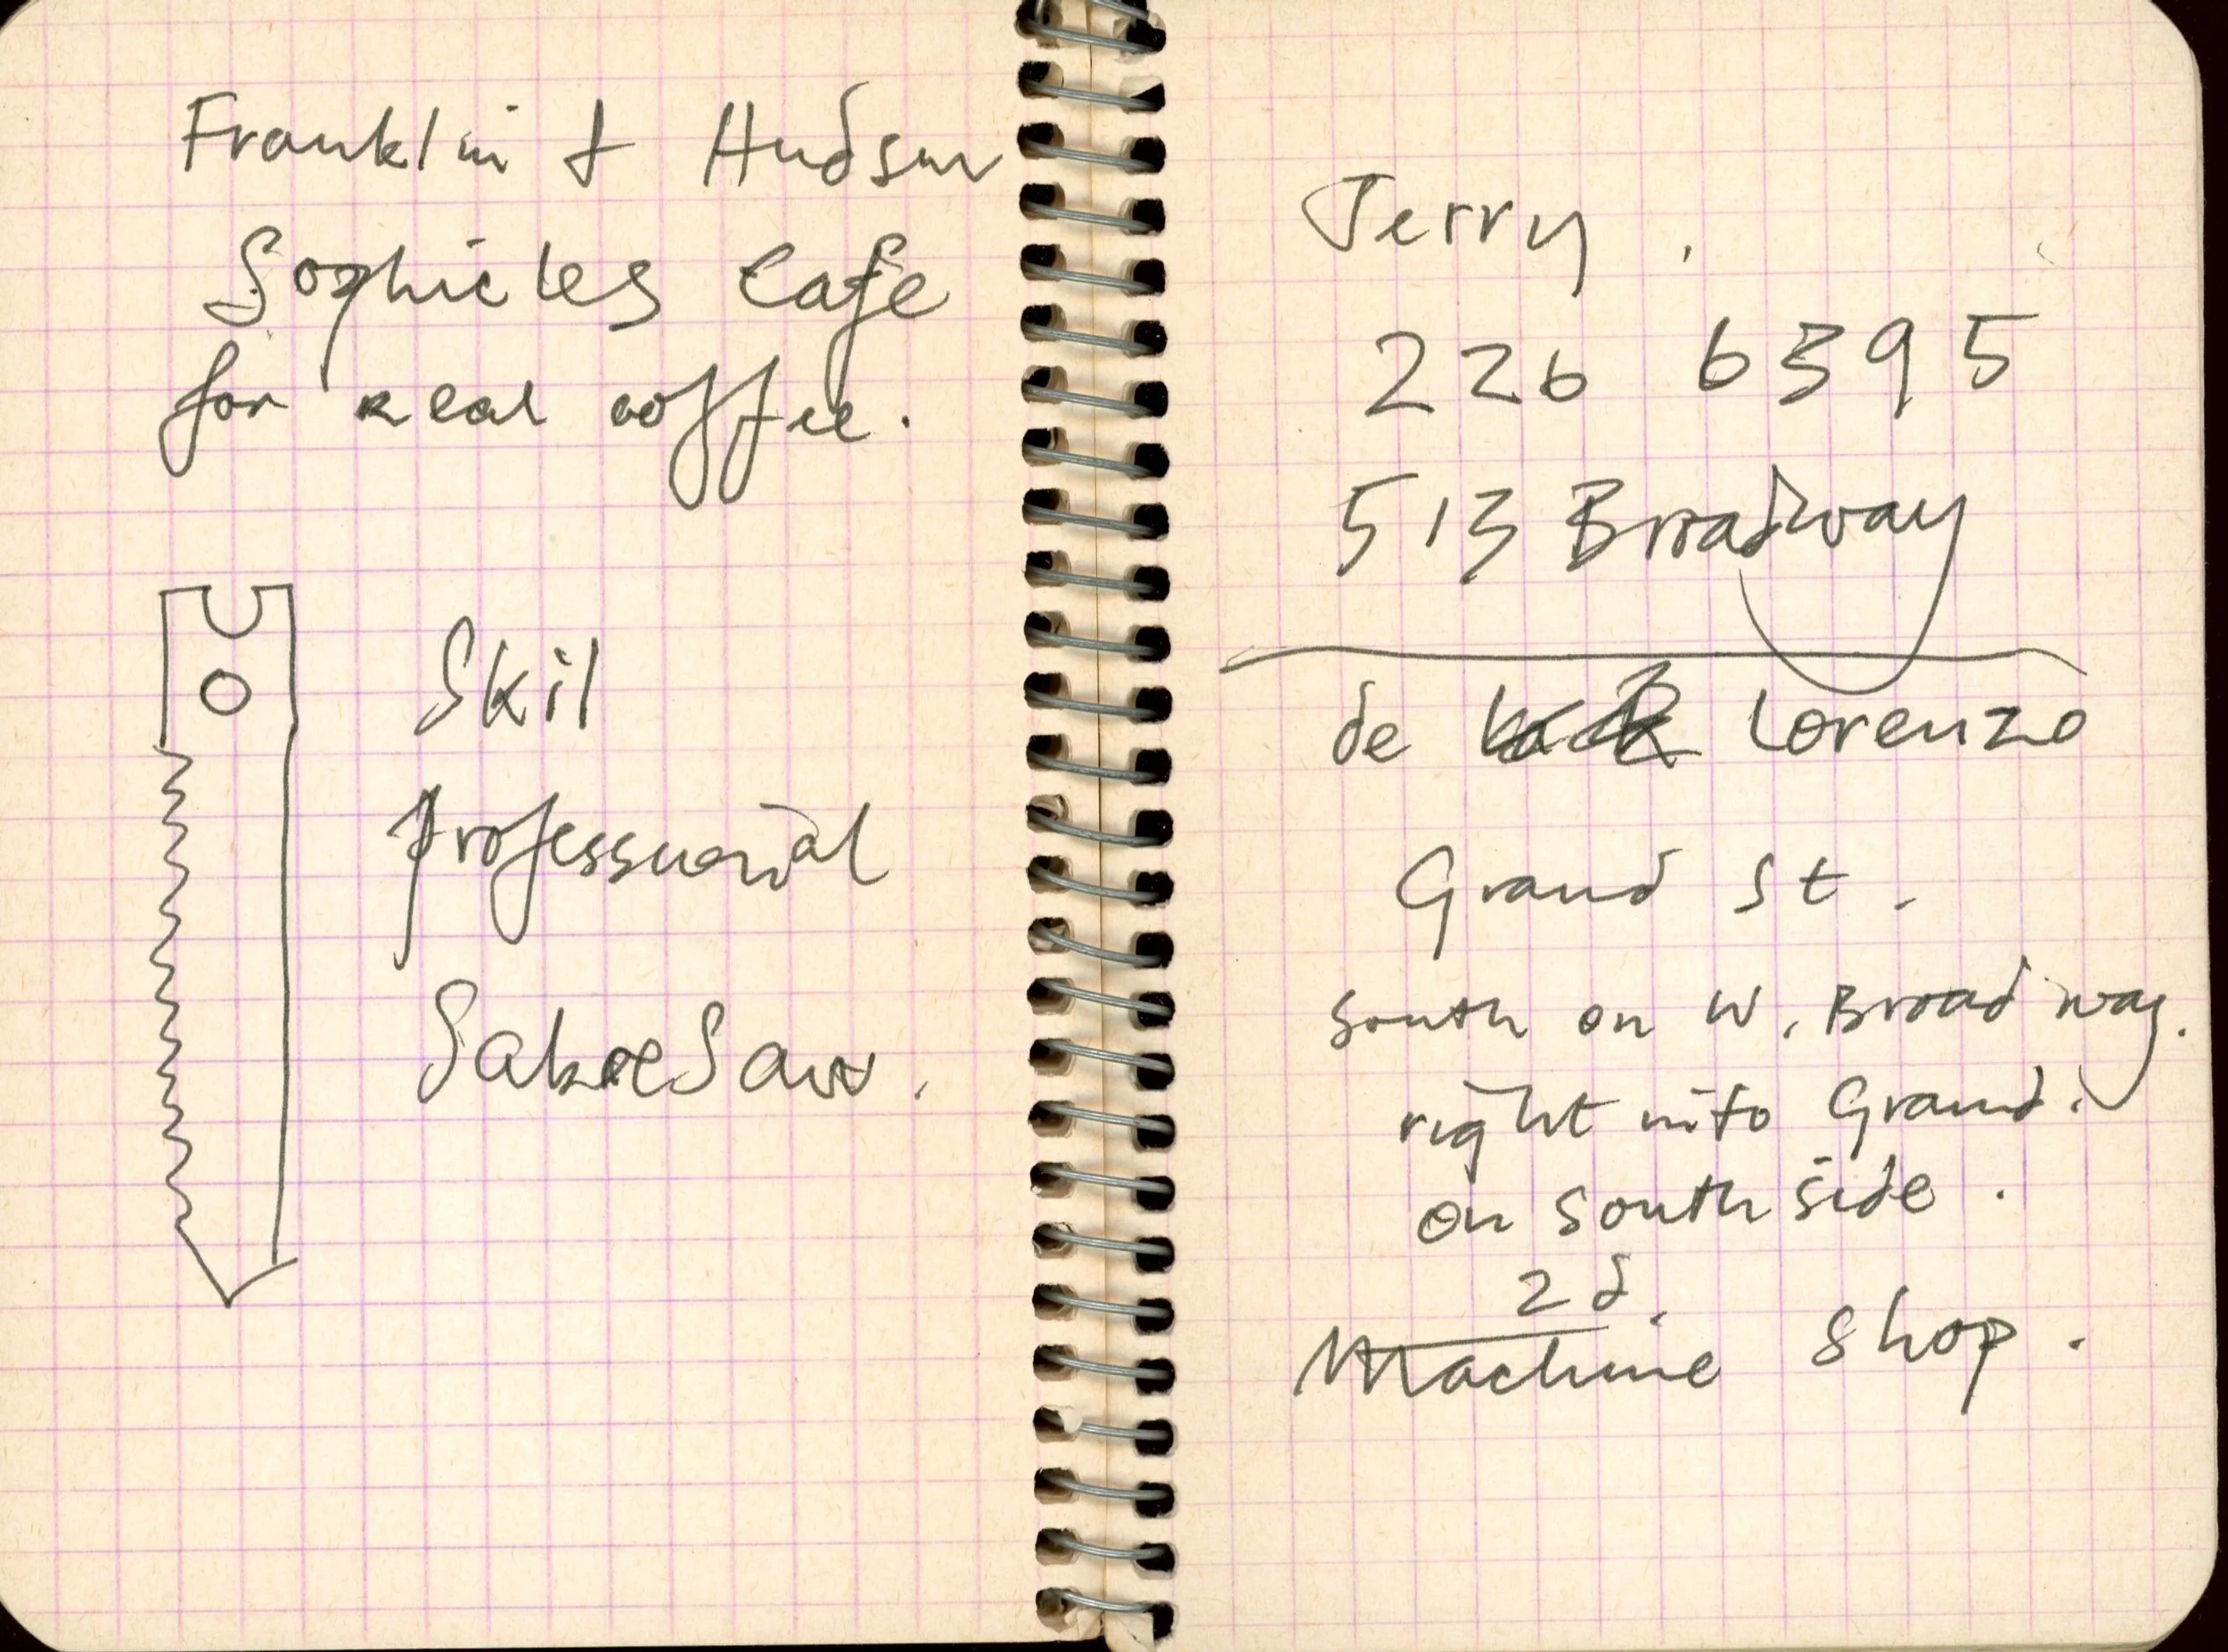 Franklin & Hudson
Sophie's Cafe
for real coffee.
Skil
professional
Sabre Saw.
Jerry.
226 6395
513 Broadway
de Lorenzo
Grand St.
South on W. Broadway.
right into Grand.
on South side.
2d.
Machine Shop.